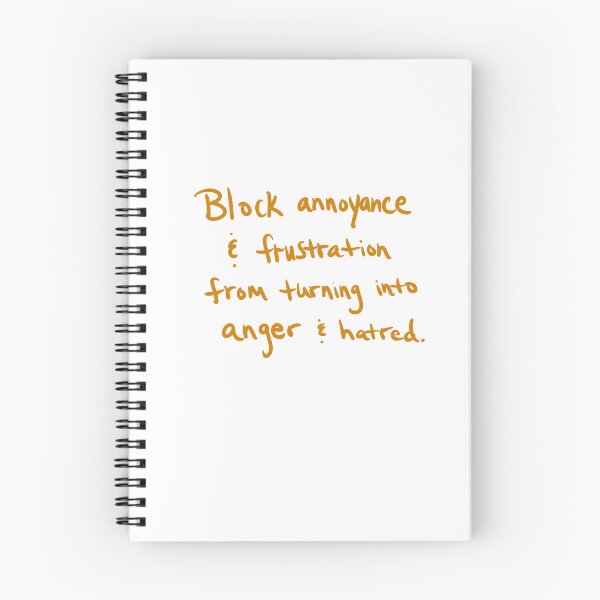 Block annoyance
& frustration
from turning into
anger & hatred.